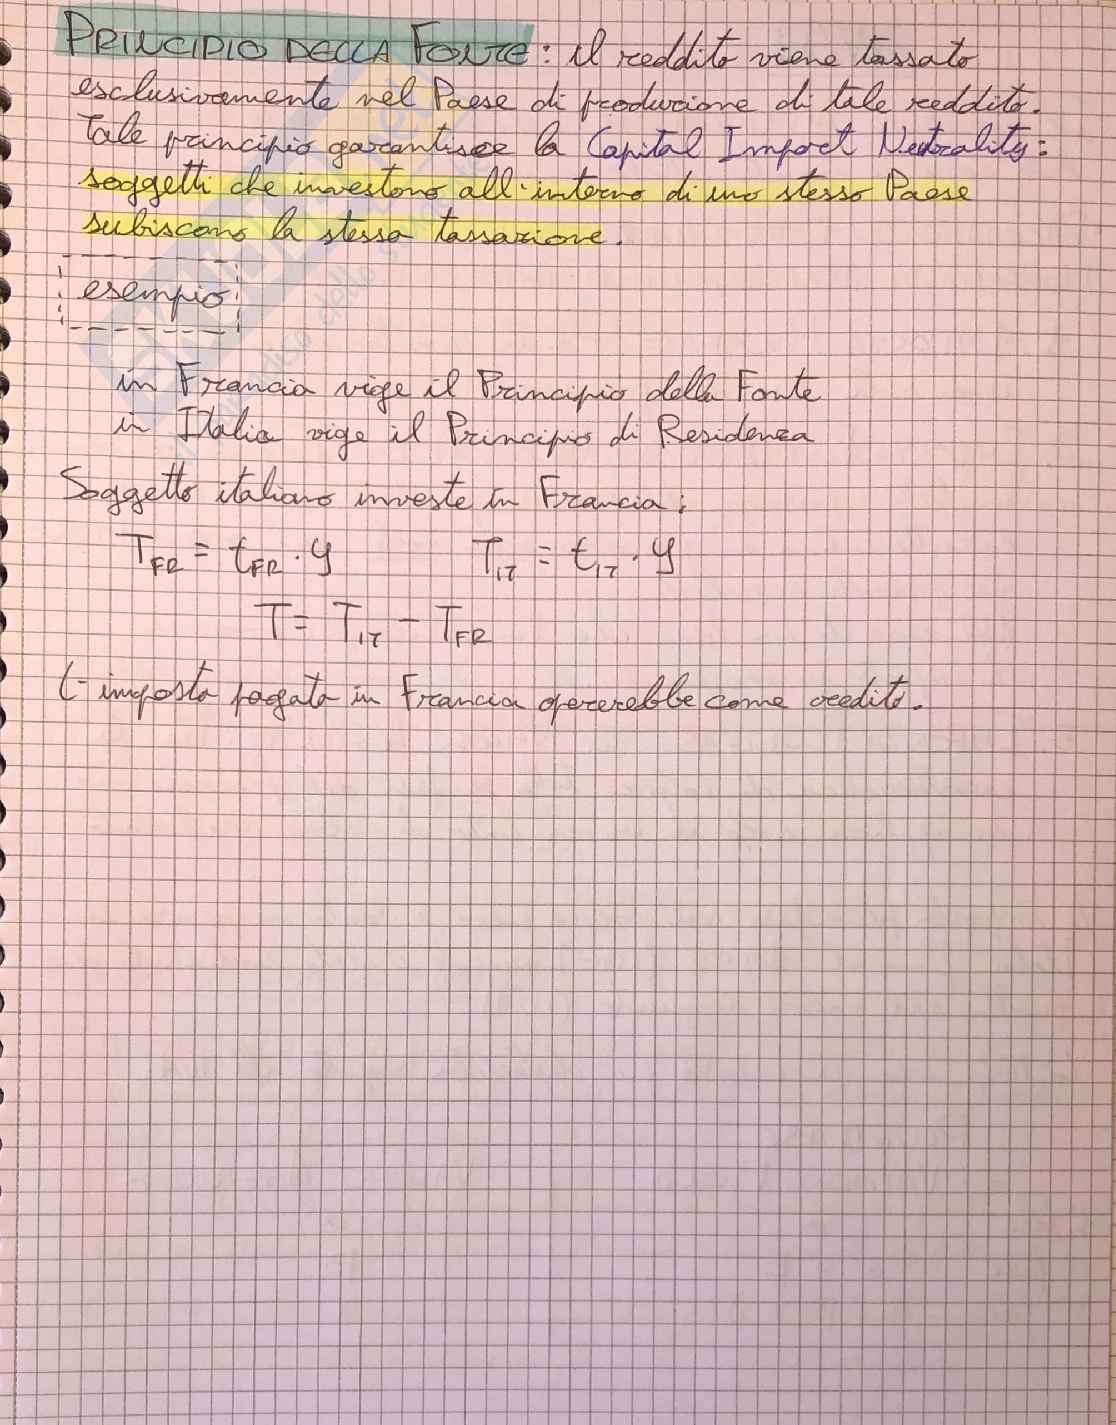 PRINCIPIO DELLA FONTE: il reddito viene tassato
esclusivamente nel Paese di produzione di tale reddito.
Tale principio garantisce la Capital Import Neutrality:
soggetti che investono all'interno di uno stesso Paese
subiscono la stessa tassazione.
esempio
in Francia vige il Principio della Fonte
in Italia vige il Principio di Residenza
Soggetto italiano investe in Francia:
T_FR = t_FR · y T_IT = t_IT · y
T = T_IT - T_FR
L'imposta pagata in Francia opererebbe come credito.